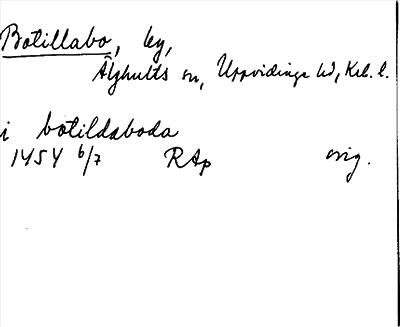 Botillabo, by,
Älghults sn, Uppvidinge hd, Krb. l.
i botildaboda
1454 6/7 RAp orig.